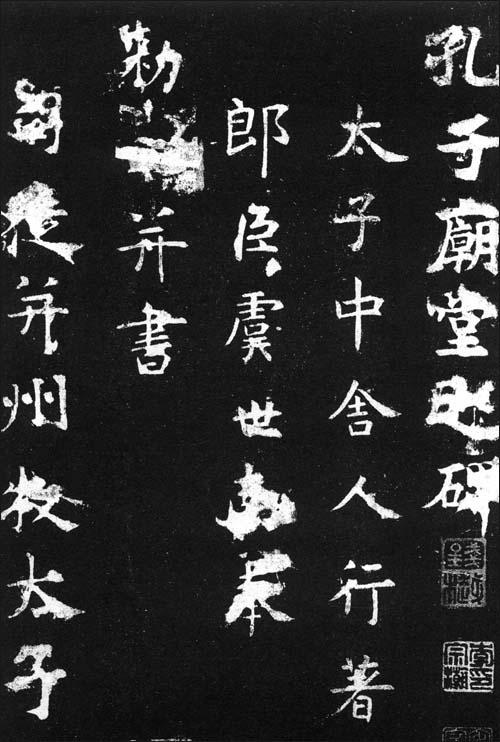 孔子廟堂之碑
太子中舍人行著
郎臣虞世南奉
勑并書
司徒并州牧太子